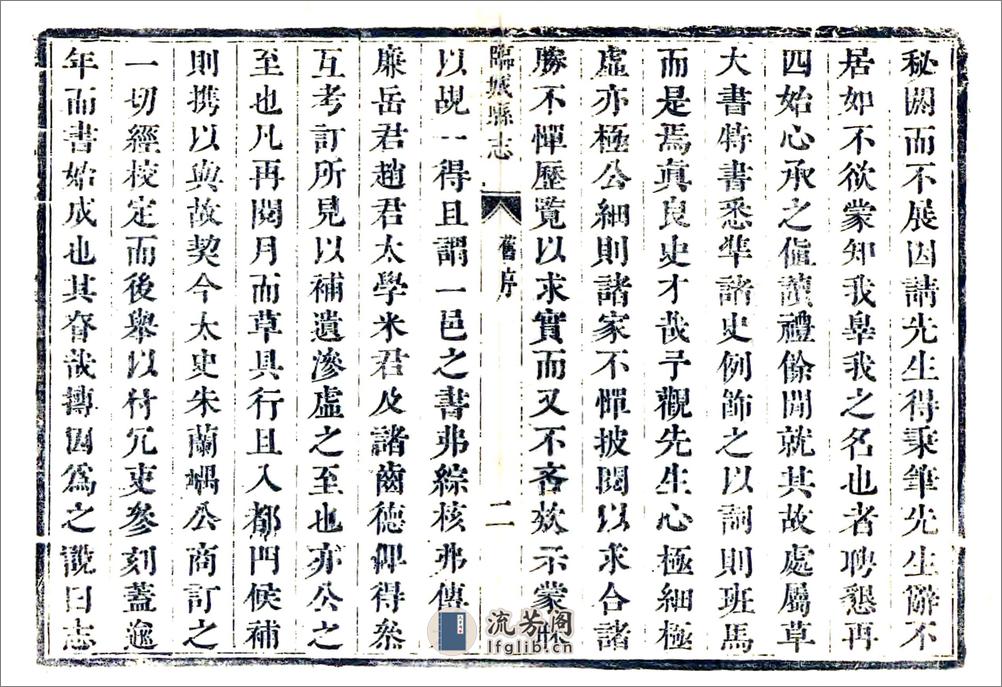 秘閟而不展因請先生得秉筆先生辭不
居如不欲蒙知我辠我之名也者聘懇再
四始心承之傾讀禮餘閒就其故處屬草
大書特書悉準諸史例飾之以詞則班馬
而是焉真良史才哉予觀先生心極細極
虛亦極公細則諸家不憚披閱以求合諸
勝不憚歷覽以求實而又不吝欬示蒙
臨城縣志
舊序
二
以覘一得且謂一邑之書弗綜核弗傳
廉岳君趙君太學米君及諸齒德俾得叅
互考訂所見以補遺滲虛之至也亦公之
至也凡再閱月而草具行且入都門候補
則携以與故契今太史朱蘭嵎公商訂之
一切經校定而後舉以付冗吏參刻蓋逾
年而書始成也其
哉摶因為之說曰志
流芳阁
lfglib.cn